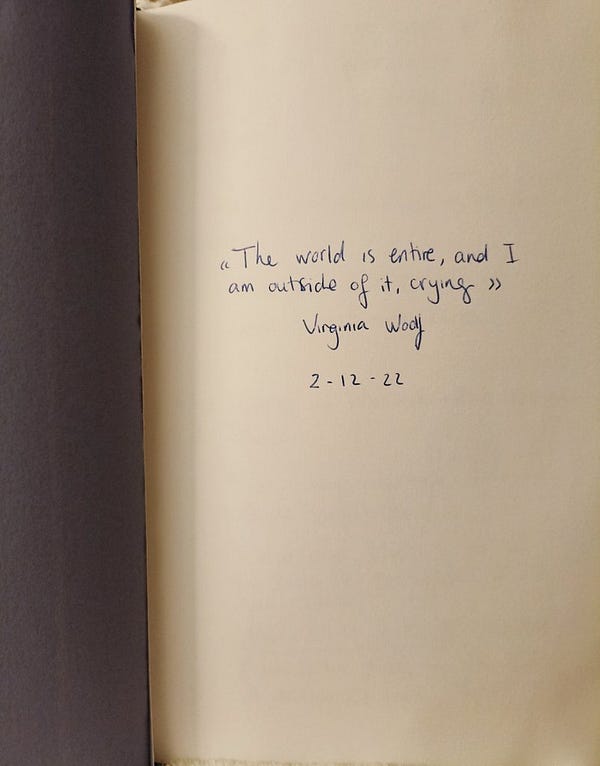 « The world is entire, and I
am outside of it, crying »
Virginia Woolf
2-12-22